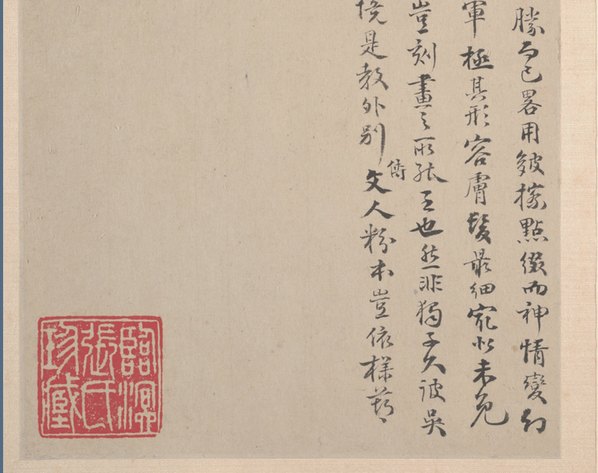 勝而已畧用皴擦點綴而神情變幻
軍極其形容膚髮最細未免
豈刻畫之所能也然非獨子久詖吳
是教外別傳文人粉本豈依樣
臨溟
張氏
珍藏